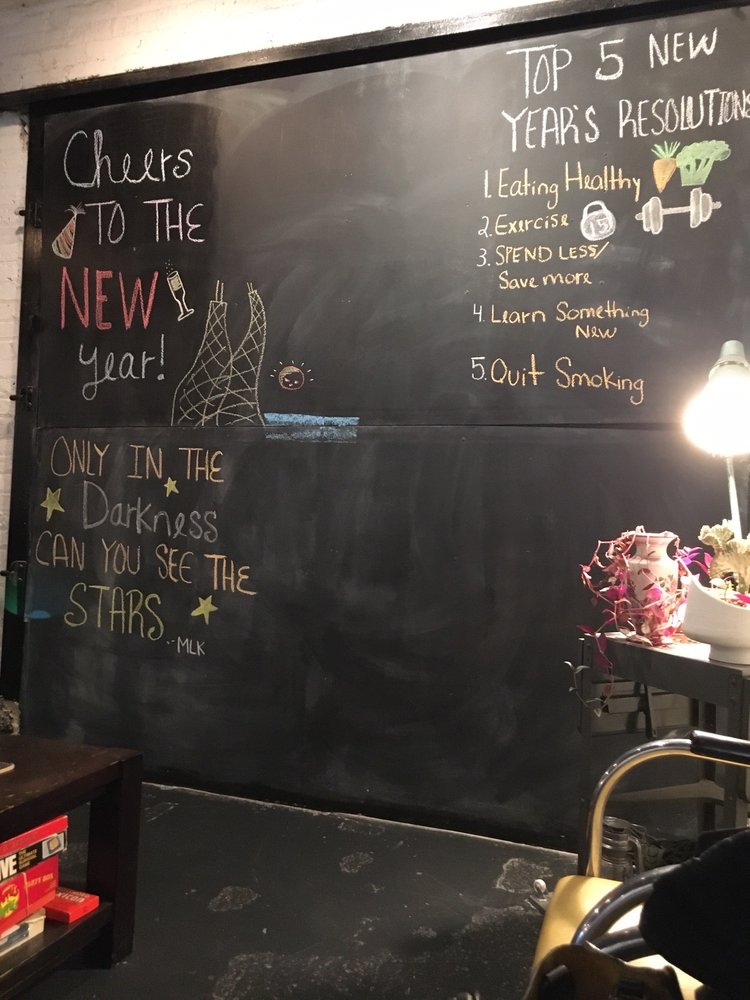 Cheers
TO THE
NEW
year!
ONLY IN THE
Darkness
CAN YOU SEE THE
STARS
--MLK
TOP 5 NEW
YEAR'S RESOLUTIONS
1. Eating Healthy
2. Exercise
15
3. SPEND LESS/
Save more
4. Learn Something
New
5. Quit Smoking